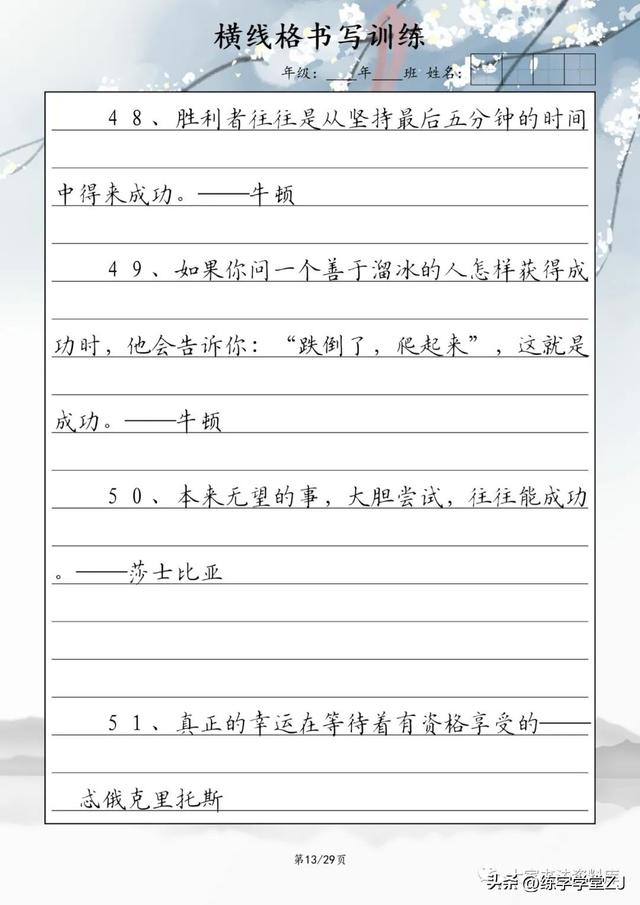 横线格书写训练
年级：____年____班 姓名：
48、胜利者往往是从坚持最后五分钟的时间
中得来成功。——牛顿
49、如果你问一个善于溜冰的人怎样获得成
功时，他会告诉你：“跌倒了，爬起来”，这就是
成功。——牛顿
50、本来无望的事，大胆尝试，往往能成功
。——莎士比亚
51、真正的幸运在等待着有资格享受的——
忒俄克里托斯
第13/29页
头条@练字学堂ZJ